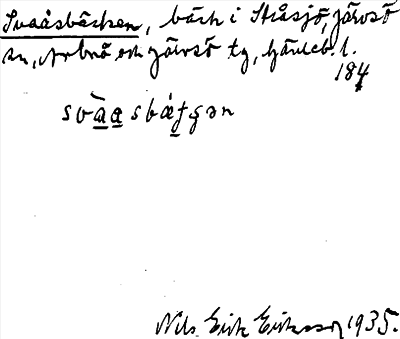 Svaåsbäcken, bäck i Stråsjö, Järvsö
sn, Arbrå och Järvsö tg, Gävleb. l.
184
Nils Erik Eriksson 1935.